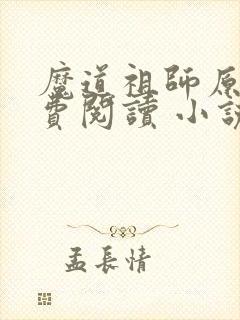 魔道祖師原
費閱讀 小說
孟長情